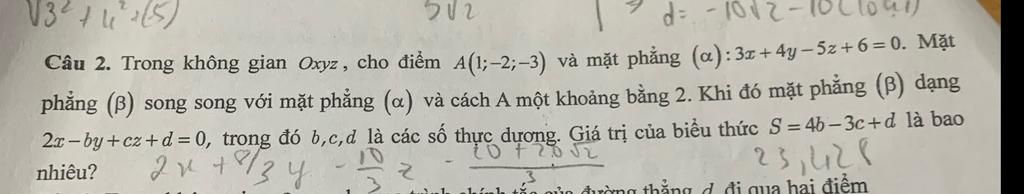 √3² + 4² + (-5)
5√2
d = -10√2 - 10
Câu 2. Trong không gian Oxyz, cho điểm A(1;-2;-3) và mặt phẳng (α): 3x + 4y - 5z + 6 = 0. Mặt
phẳng (β) song song với mặt phẳng (α) và cách A một khoảng bằng 2. Khi đó mặt phẳng (β) dạng
2x - by + cz + d = 0, trong đó b,c,d là các số thực dương. Giá trị của biểu thức S = 4b - 3c + d là bao
nhiêu? 2x + 8/3 y - 10/3 z - 20 + 20√2 / 3 23,428
chính tắc của đường thẳng d đi qua hai điểm